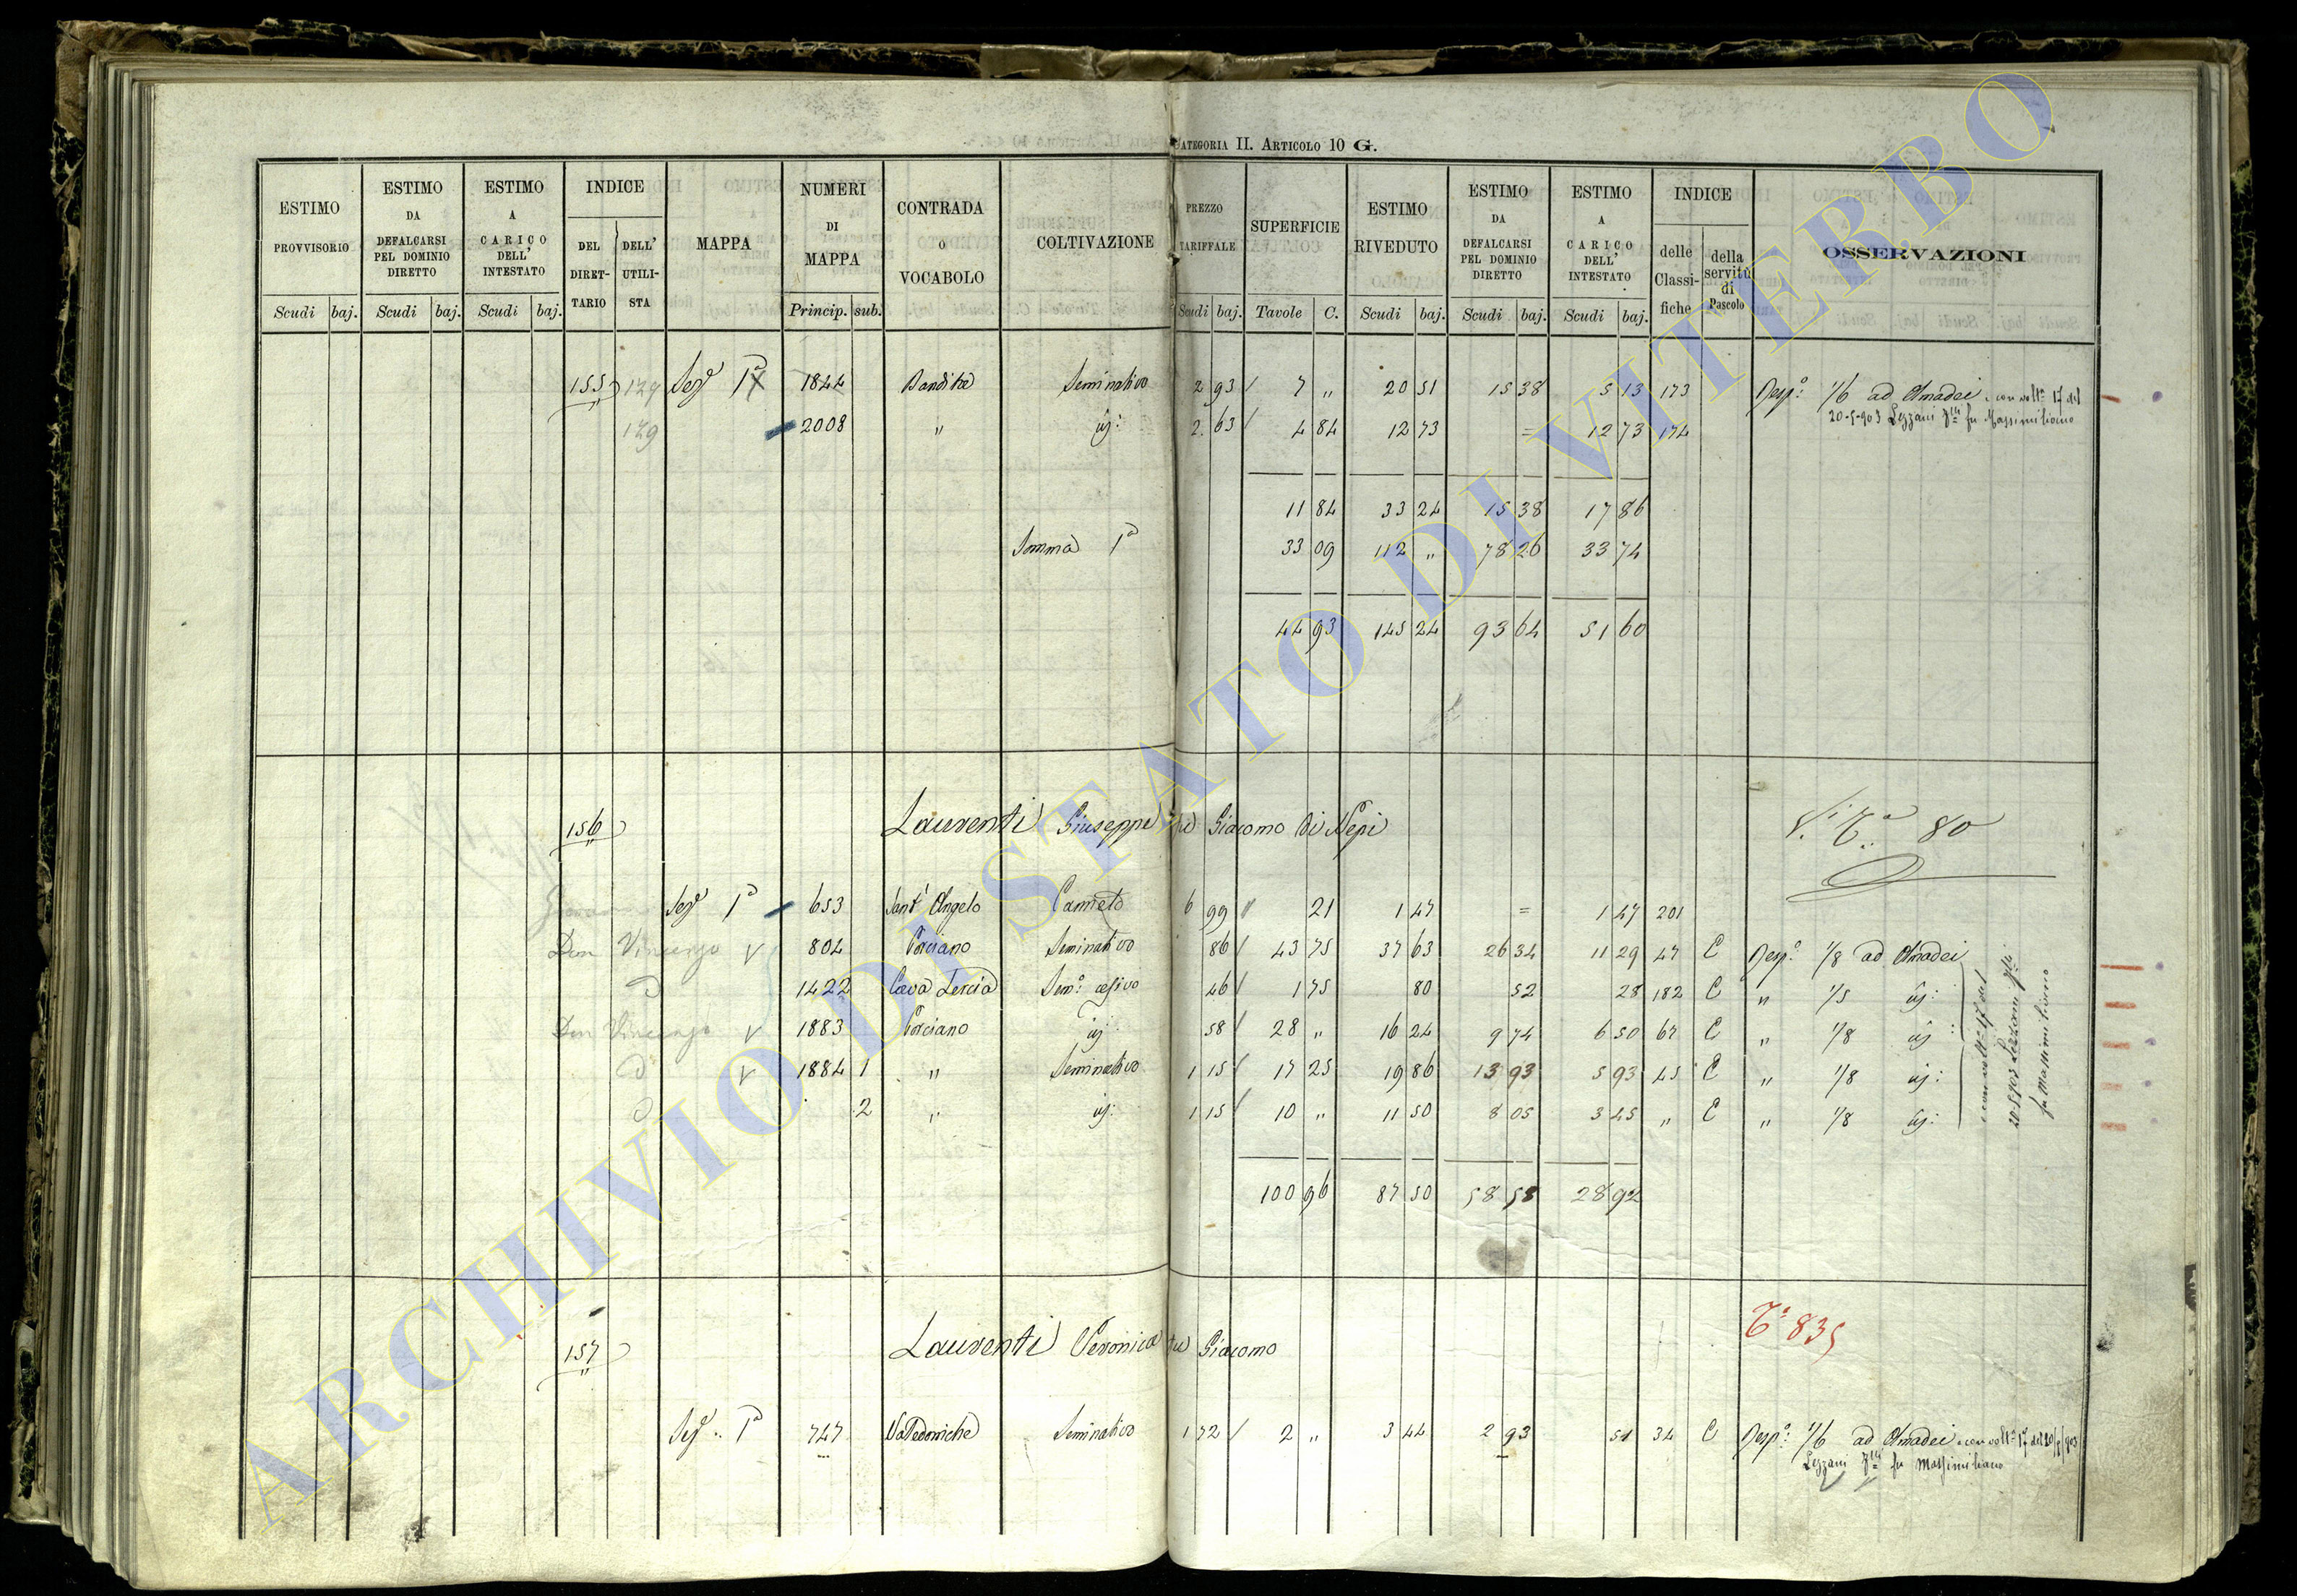 CATEGORIA II. ARTICOLO 10 G.
ESTIMO PROVVISORIO Scudi baj.
ESTIMO DA DEFALCARSI PEL DOMINIO DIRETTO Scudi baj.
ESTIMO A CARICO DELL' INTESTATO Scudi baj.
INDICE DEL DIRETTARIO DELL' UTILISTA
MAPPA
NUMERI DI MAPPA Princip. sub.
CONTRADA O VOCABOLO
COLTIVAZIONE
PREZZO TARIFFALE Scudi baj.
SUPERFICIE Tavole C.
ESTIMO RIVEDUTO Scudi baj.
ESTIMO DA DEFALCARSI PEL DOMINIO DIRETTO Scudi baj.
ESTIMO A CARICO DELL' INTESTATO Scudi baj.
INDICE delle Classifiche della servitù di Pascolo
OSSERVAZIONI
155 129 Sez.e 1a 1844 Bandita Seminativo 2 93 7 " 20 51 15 38 5 13 173 Resp.a 1/6 ad Amadei e con volt.a 17 del
20-5-903 Lezzani F.lli fu Massimiliano
129 2008 " id: 2 63 4 84 12 73 = 12 73 174
11 84 33 24 15 38 17 86
Somma 1a 33 09 112 " 78 26 33 74
44 93 145 24 93 64 51 60
156 Laurenti Giuseppe fu Giacomo di Nepi
80
Sez.e 1a 653 Sant' Angelo Canneto 6 99 21 1 47 = 1 47 201
Don Vincenzo V 804 Porciano Seminativo 86 43 75 37 63 26 34 11 29 47 C Resp.a 1/8 ad Amadei
1422 Cava Tercia Sem.o cesivo 46 1 75 80 52 28 182 C " 1/5 id:
Don Vincenzo V 1883 Porciano id 58 28 " 16 24 9 74 6 50 67 C " 1/8 id:
V 1884 1 " Seminativo 1 15 17 25 19 86 13 93 5 93 45 C " 1/8 id:
2 " id: 1 15 10 " 11 50 8 05 3 45 " C " 1/8 id:
e con volt.a 17 del
20 5 903 Lezzani F.lli
fu Massimiliano
100 96 87 50 58 58 28 92
T.a 835
157 Laurenti Veronica fu Giacomo
Sez.e 1a 747 Seminativo 1 72 2 " 3 44 2 93 51 34 C Resp.a 1/6 ad Amadei e con volt.a 17 del 20/5/903
Lezzani F.lli fu Massimiliano
ARCHIVIO DI STATO DI VITERBO